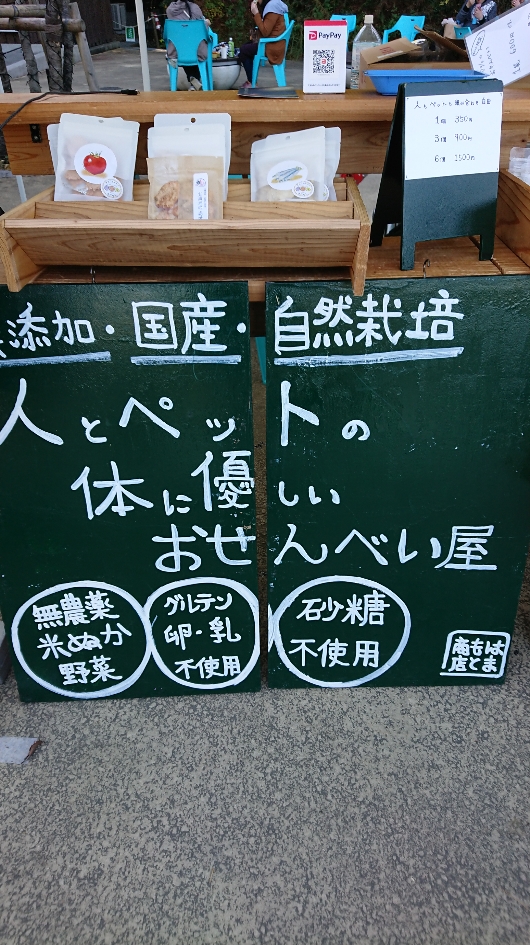 PayPay
人とペットの
1個 350円
3個 900円
6個 1500円
添加・国産・自然栽培
人とペットの
体に優しい
おせんべい屋
無農薬
米ぬか
野菜
グルテン
卵・乳
不使用
砂糖
不使用